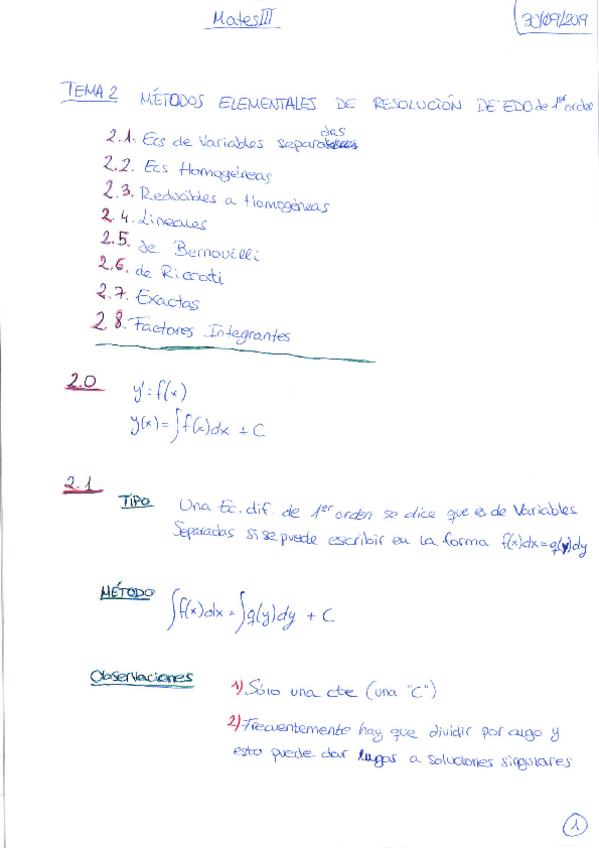 Mates III
30/09/2019
TEMA 2 MÉTODOS ELEMENTALES DE RESOLUCIÓN DE EDO de 1er orden
2.1. Ecs de Variables separadas
2.2. Ecs Homogéneas
2.3. Reducibles a Homogéneas
2.4. Lineales
2.5. de Bernouilli
2.6. de Riccati
2.7. Exactas
2.8. Factores Integrantes
2.0 y' = f(x)
y(x) = ∫f(x)dx + C
2.1
TIPO Una Ec. dif. de 1er orden se dice que es de Variables
Separadas si se puede escribir en la forma f(x)dx = g(y)dy
MÉTODO ∫f(x)dx = ∫g(y)dy + C
Observaciones 1) Sólo una cte (una "C")
2) Frecuentemente hay que dividir por algo y
esto puede dar lugar a soluciones singulares
1